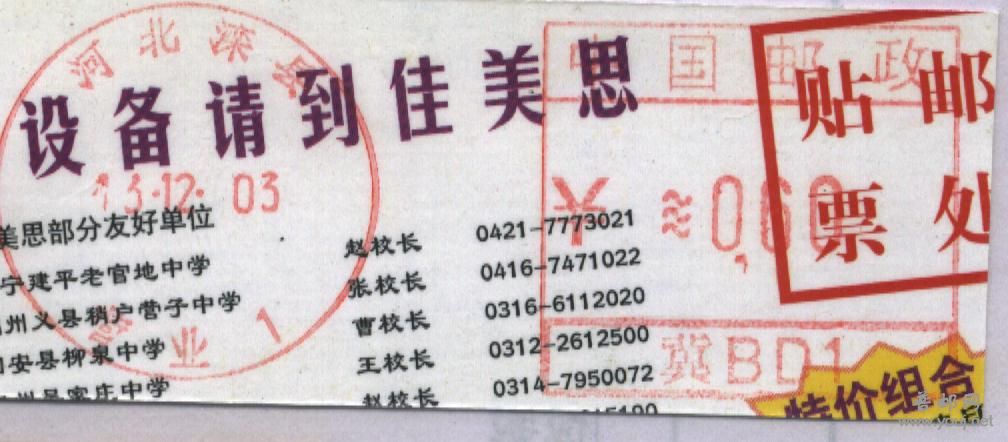 河北滦县
设备请到佳美思
中国邮政
贴邮
票处
13.12.03
≈060
美思部分友好单位
宁建平老官地中学 赵校长 0421-7773021
州义县稍户营子中学 张校长 0416-7471022
安县柳泉中学 曹校长 0316-6112020
王校长 0312-2612500
吴家庄中学 赵校长 0314-7950072
业 1
冀BD1
特价组合
www.yoqi.net